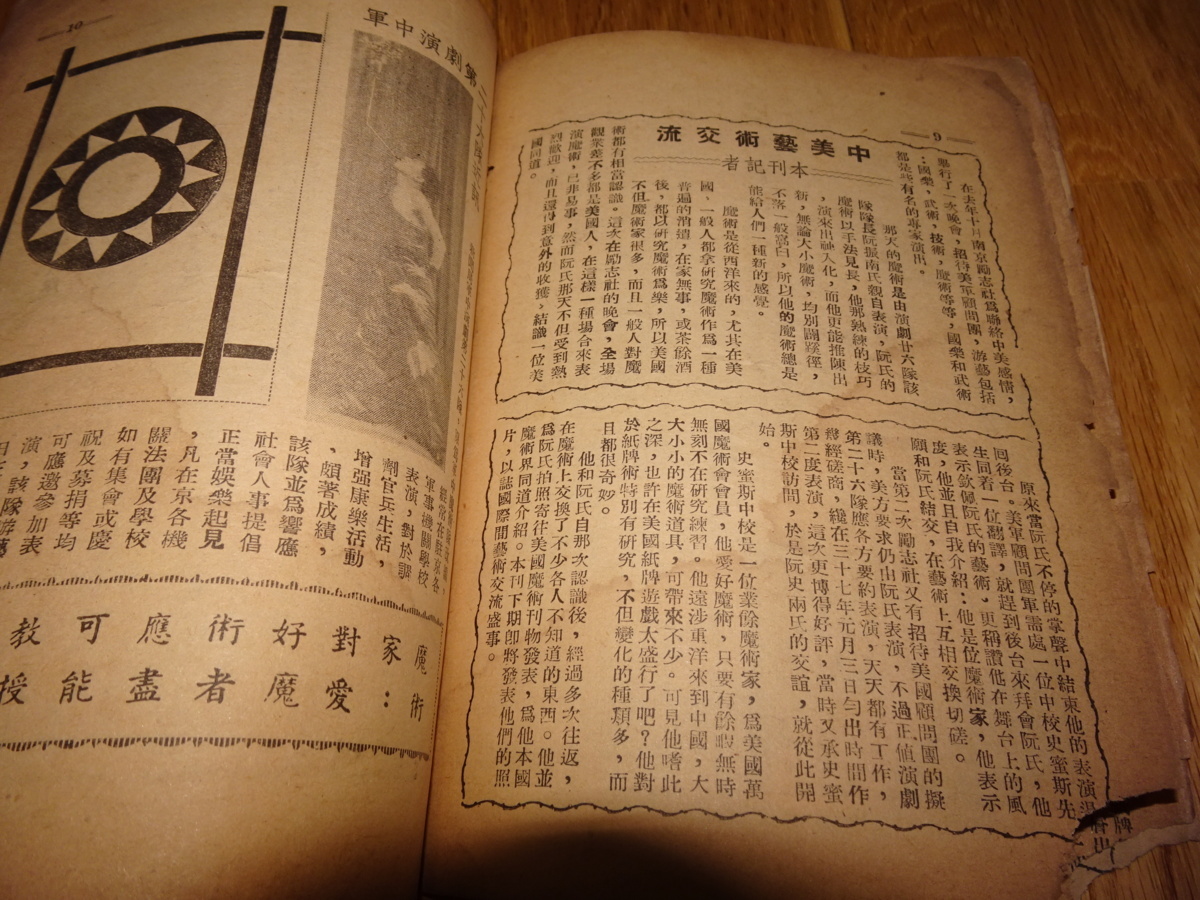 9
中美藝術交流
本刊記者
在去年十月南京勵志社爲聯絡中美感情，
舉行了一次晚會，招待美軍顧問團，游藝包括
：國樂，武術，技術，魔術等等，國樂和武術
都是些有名的專家演出。
那天的魔術是由演劇廿六隊該
隊隊長阮振南氏親自表演，阮氏的
魔術以手法見長，他那熟練的技巧
，演來出神入化，而他更能推陳出
新，無論大小魔術，均別闢蹊徑，
不落一般窩臼，所以他的魔術總是
能給人們一種新的感覺。
魔術是從西洋來的，尤其在美
國、一般人都拿研究魔術作爲一種
普遍的消遣，在家無事，或茶餘酒
後，都以研究魔術爲樂，所以美國
不但魔術家很多，而且一般人對魔
術都有相當認識。這次在勵志社的晚會，全場
觀衆差不多都是美國人，在這樣一種場合來表
演魔術，已非易事，然而阮氏那天不但受到熱
烈歡迎，而且還得到意外的收獲，結識一位美
國同道。
原來當阮氏不停的掌聲中結束他的表演
回後台。美軍顧問團軍需處一位中校史蜜斯先
生同着一位翻譯，就趕到後台來拜會阮氏，他
表示欽佩阮氏的藝術，更稱讚他在舞台上的風
度，他並且自我介紹：他是位魔術家，他表示
願和阮氏結交，在藝術上互相交換切磋。
當第二次勵志社又有招待美國顧問團的擬
議時，美方要求仍由阮氏表演，不過正值演劇
第二十六隊應各方要約表演，天天都有工作，
幾經磋商，纔在三十七年元月三日勻出時間作
第二度表演，這次更博得好評，當時又承史蜜
斯中校訪問，於是阮史兩氏的交誼，就從此開
始。
史蜜斯中校是一位業餘魔術家，爲美國萬
國魔術會會員，他愛好魔術，只要有餘暇無時
無刻不在研究練習。他遠涉重洋來到中國，大
大小小的魔術道具，可帶來不少。可見他嗜此
之深，也許在美國紙牌遊戲太盛行了吧？他對
於紙牌術特別有研究，不但變化的種類多，而
且都很奇妙。
他和阮氏自那次認識後，經過多次往返，
在魔術上交換了不少各人不知道的東西。他並
爲阮氏拍照寄往美國魔術刊物發表，爲他本國
魔術界同道介紹。本刊下期卽將發表他們的照
片，以誌國際間藝術交流盛事。
10
軍中演劇第二十六隊
經常在駐京各
軍事機關學校
表演，對於調
劑官兵生活，
增强康樂活動
，頗著成績，
該隊並爲響應
社會人事提倡
正當娛樂起見
，凡在京各機
關法團及學校
如有集會或慶
祝及募捐等均
可應邀參加表
演，該隊
魔術
家：
對愛
好魔
術者
應盡
可能
教授